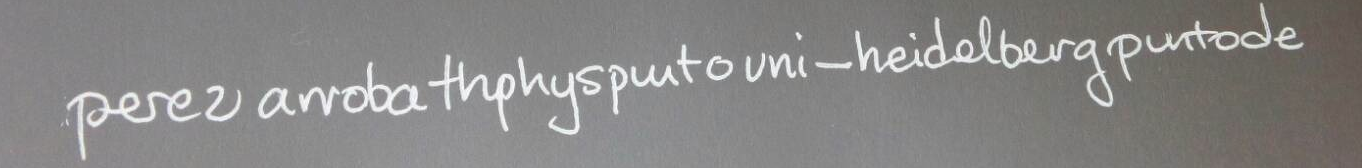 perez arroba thphyspunto uni-heidelberg puntode